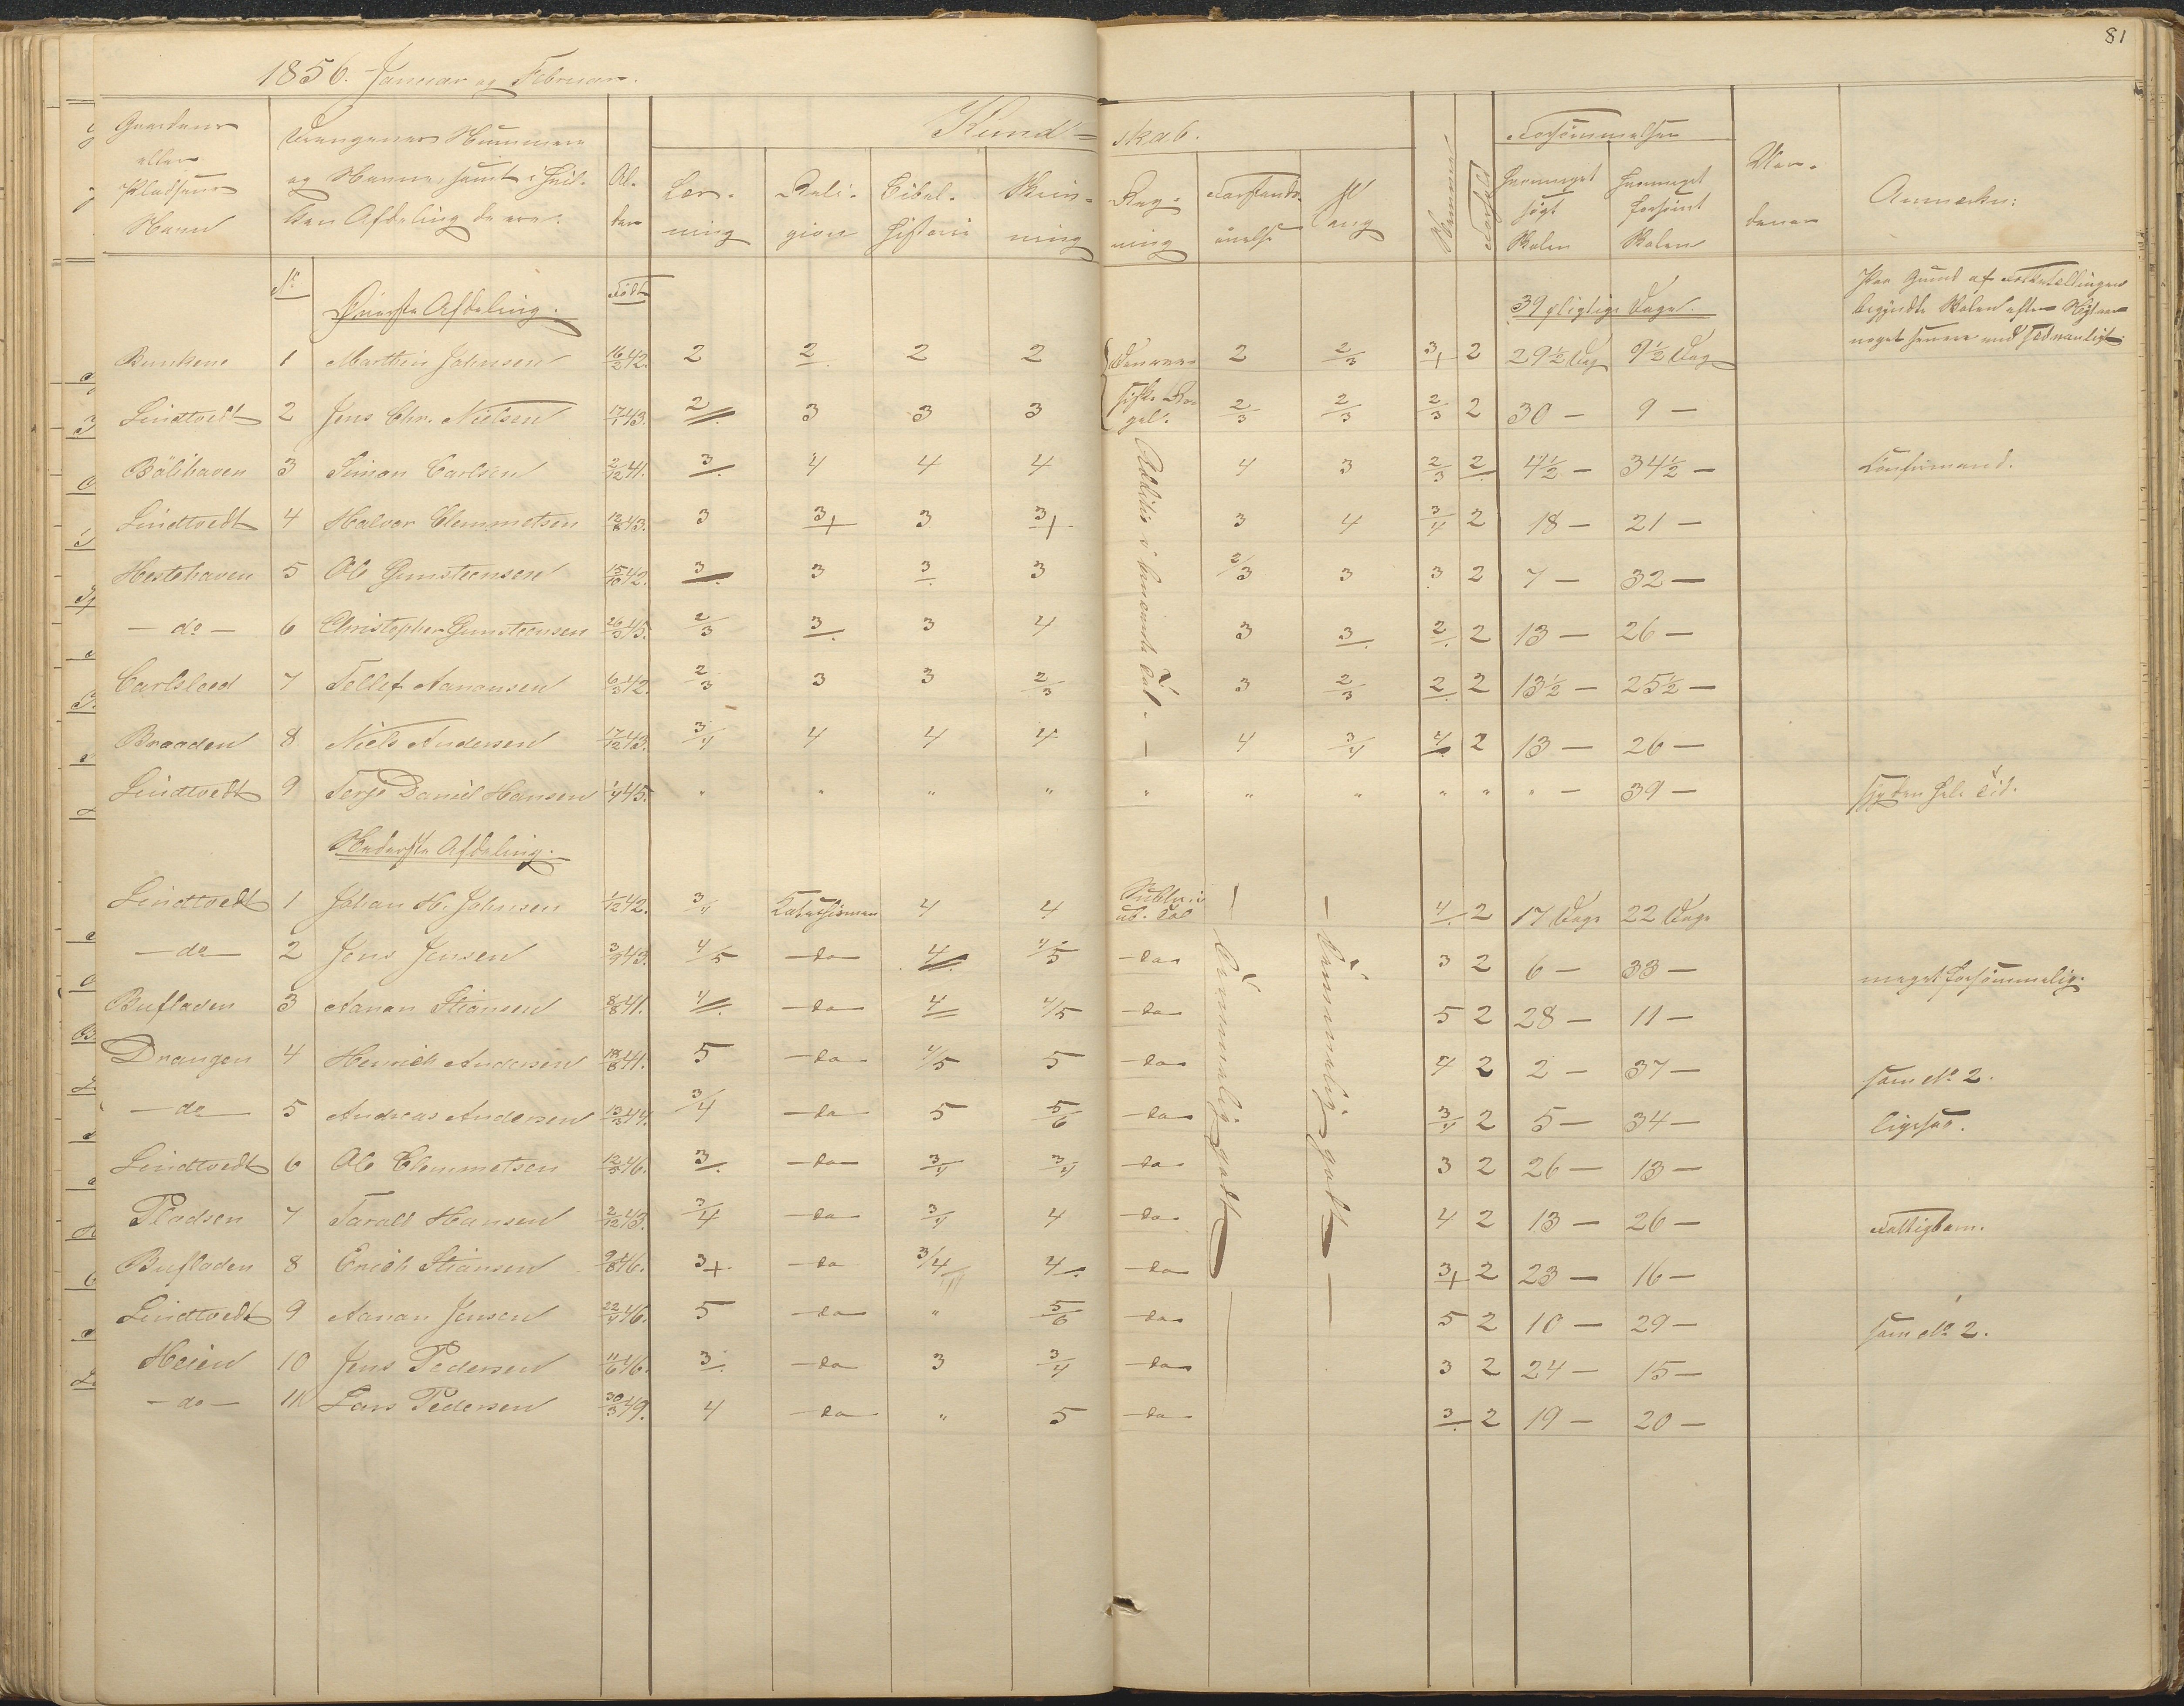 81
1856. Januar og Februar.
Gaardens eller Pladsens Navn
Drengenes Nummere og Navne, samt i hvilken Afdeling de ere.
Alder
Kundskab.
Læsning
Religion
Bibelhistorie
Skrivning
Regning
Forstandsøvelse
Sang
Nemme
Forhold
Forsømmelser
hvormeget søgt Skolen
hvormeget forsømt Skolen
Anmærkn:
No Øverste Afdeling. Født 39 pligtige Dage. Paa Grund af Folketællingen
begyndte Skolen efter Nytaar
noget senere end sædvanligt.
1 Marthin Johnsen 16/2 42. 2 2 2 2 2 2/3 3+ 2 29½ Dag 9½ Dag
Lindtvedt 2 Jens Chr. Nielsen 17/1 43. 2 3 3 3 2/3 2/3 2/3 2 30 — 9 —
Bölihaven 3 Simon Carlsen 2/12 41. 3 4 4 4 4 3 2/3 2 4½ — 34½ — Confirmand.
Lindtvedt 4 Halvor Clemmetsen 12/8 43. 3 3+ 3 3+ 3 4 3/4 2 18 — 21 —
Hestehaven 5 Ole Gunsteensen 15/10 42. 3 3 3 3 2/3 3 3 2 7 — 32 —
— do — 6 Christopher Gunsteensen 26/5 45. 2/3 3 3 4 3 3 2 2 13 — 26 —
Carlsleed 7 Tellef Aanonsen 6/3 42. 2/3 3 3 2/3 3 2/3 2 2 13½ — 25½ —
Braaden 8 Niels Andersen 17/12 43. 3/4 4 4 4 — 4 3/4 4 2 13 — 26 —
Lindtvedt 9 Terje Daniel Hansen 1/4 45. " " " " " " " " " " — 39 — syg den hele Tid.
Nederste Afdeling.
Lindtvedt 1 Johan H. Johnsen 1/12 42. 3/4 Katechismen 4 4 4 2 17 Dage 22 Dage
— do — 2 Jens Jensen 3/9 43. 4/5 — do — 4 4/5 — do — 3 2 6 — 33 — meget forsømmelig.
Bufladen 3 Aanon Stiansen 8/8 41. 4 — do — 4 4/5 — do — 5 2 28 — 11 —
Drangen 4 Henrich Andersen 18/8 41. 5 — do — 4/5 5 — do — 4 2 2 — 37 — som No 2.
— do — 5 Andreas Andersen 13/3 44. 3/4 — do — 5 5/6 — do — 3/4 2 5 — 34 — ligesaa.
Lindtvedt 6 Ole Clemmetsen 12/5 46. 3 — do — 3/4 3/4 — do — 3 2 26 — 13 —
Pladsen 7 Taralt Hansen 2/12 43. 3/4 — do — 3/4 4 — do — 4 2 13 — 26 — Fattigbarn.
Bufladen 8 Erich Stiansen 9/8 46. 3+ — do 3/4 4 — do — 3+ 2 23 — 16 —
Lindtvedt 9 Aanon Jensen 22/4 46. 5 — do — " 5/6 — do — 5 2 10 — 29 — som No 2.
Heien 10 Jens Pedersen 11/6 46. 3 — do — 3 3/4 — do — 3 2 24 — 15 —
— do — 11 Lars Pedersen 30/3 49. 4 — do — " 5 — do — 3 2 19 — 20 —